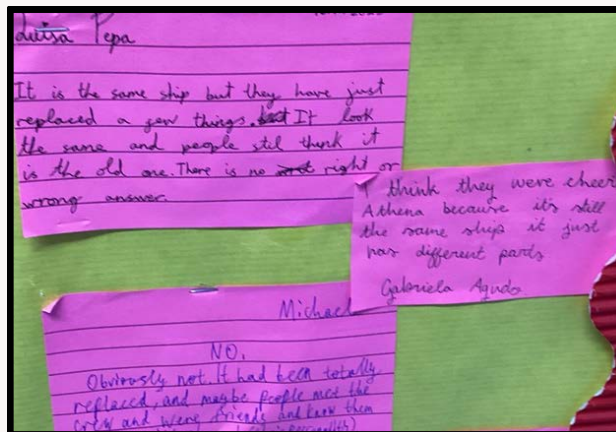 Luisa Pepa
It is the same ship but they have just
replaced a few things. It look
the same and people stil think it
is the old one. There is no right or
wrong answer.
I think they were cheer
Athena because it's still
the same ship it just
has different parts
Gabriela Agudo
Michael
NO.
Obviously not. It had been totally
replaced, and maybe people met the
crew and were friends and know them